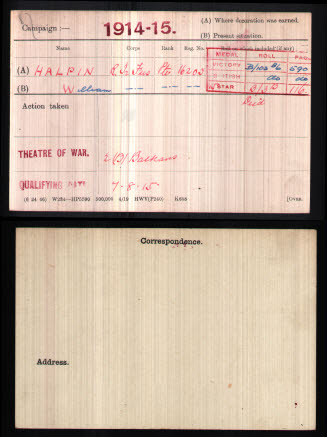 Campaign :— 1914-15.
(A) Where decoration was earned.
(B) Present situation.
Name Corps Rank Reg. No. Roll on which included (if any)
MEDAL ROLL PAGE
(A) HALPIN R. Ir. Fus Pte 16202
VICTORY B/102 B6 590
(B) William — " — — " — — " —
BRITISH do do
15 STAR 116
Action taken
Died
THEATRE OF WAR. 2(B) Balkans
QUALIFYING DATE 7-8-15
(6 24 46) W234—HP5590 500,000 4/19 HWV(P240) K608 [Over.
Correspondence.
Address.